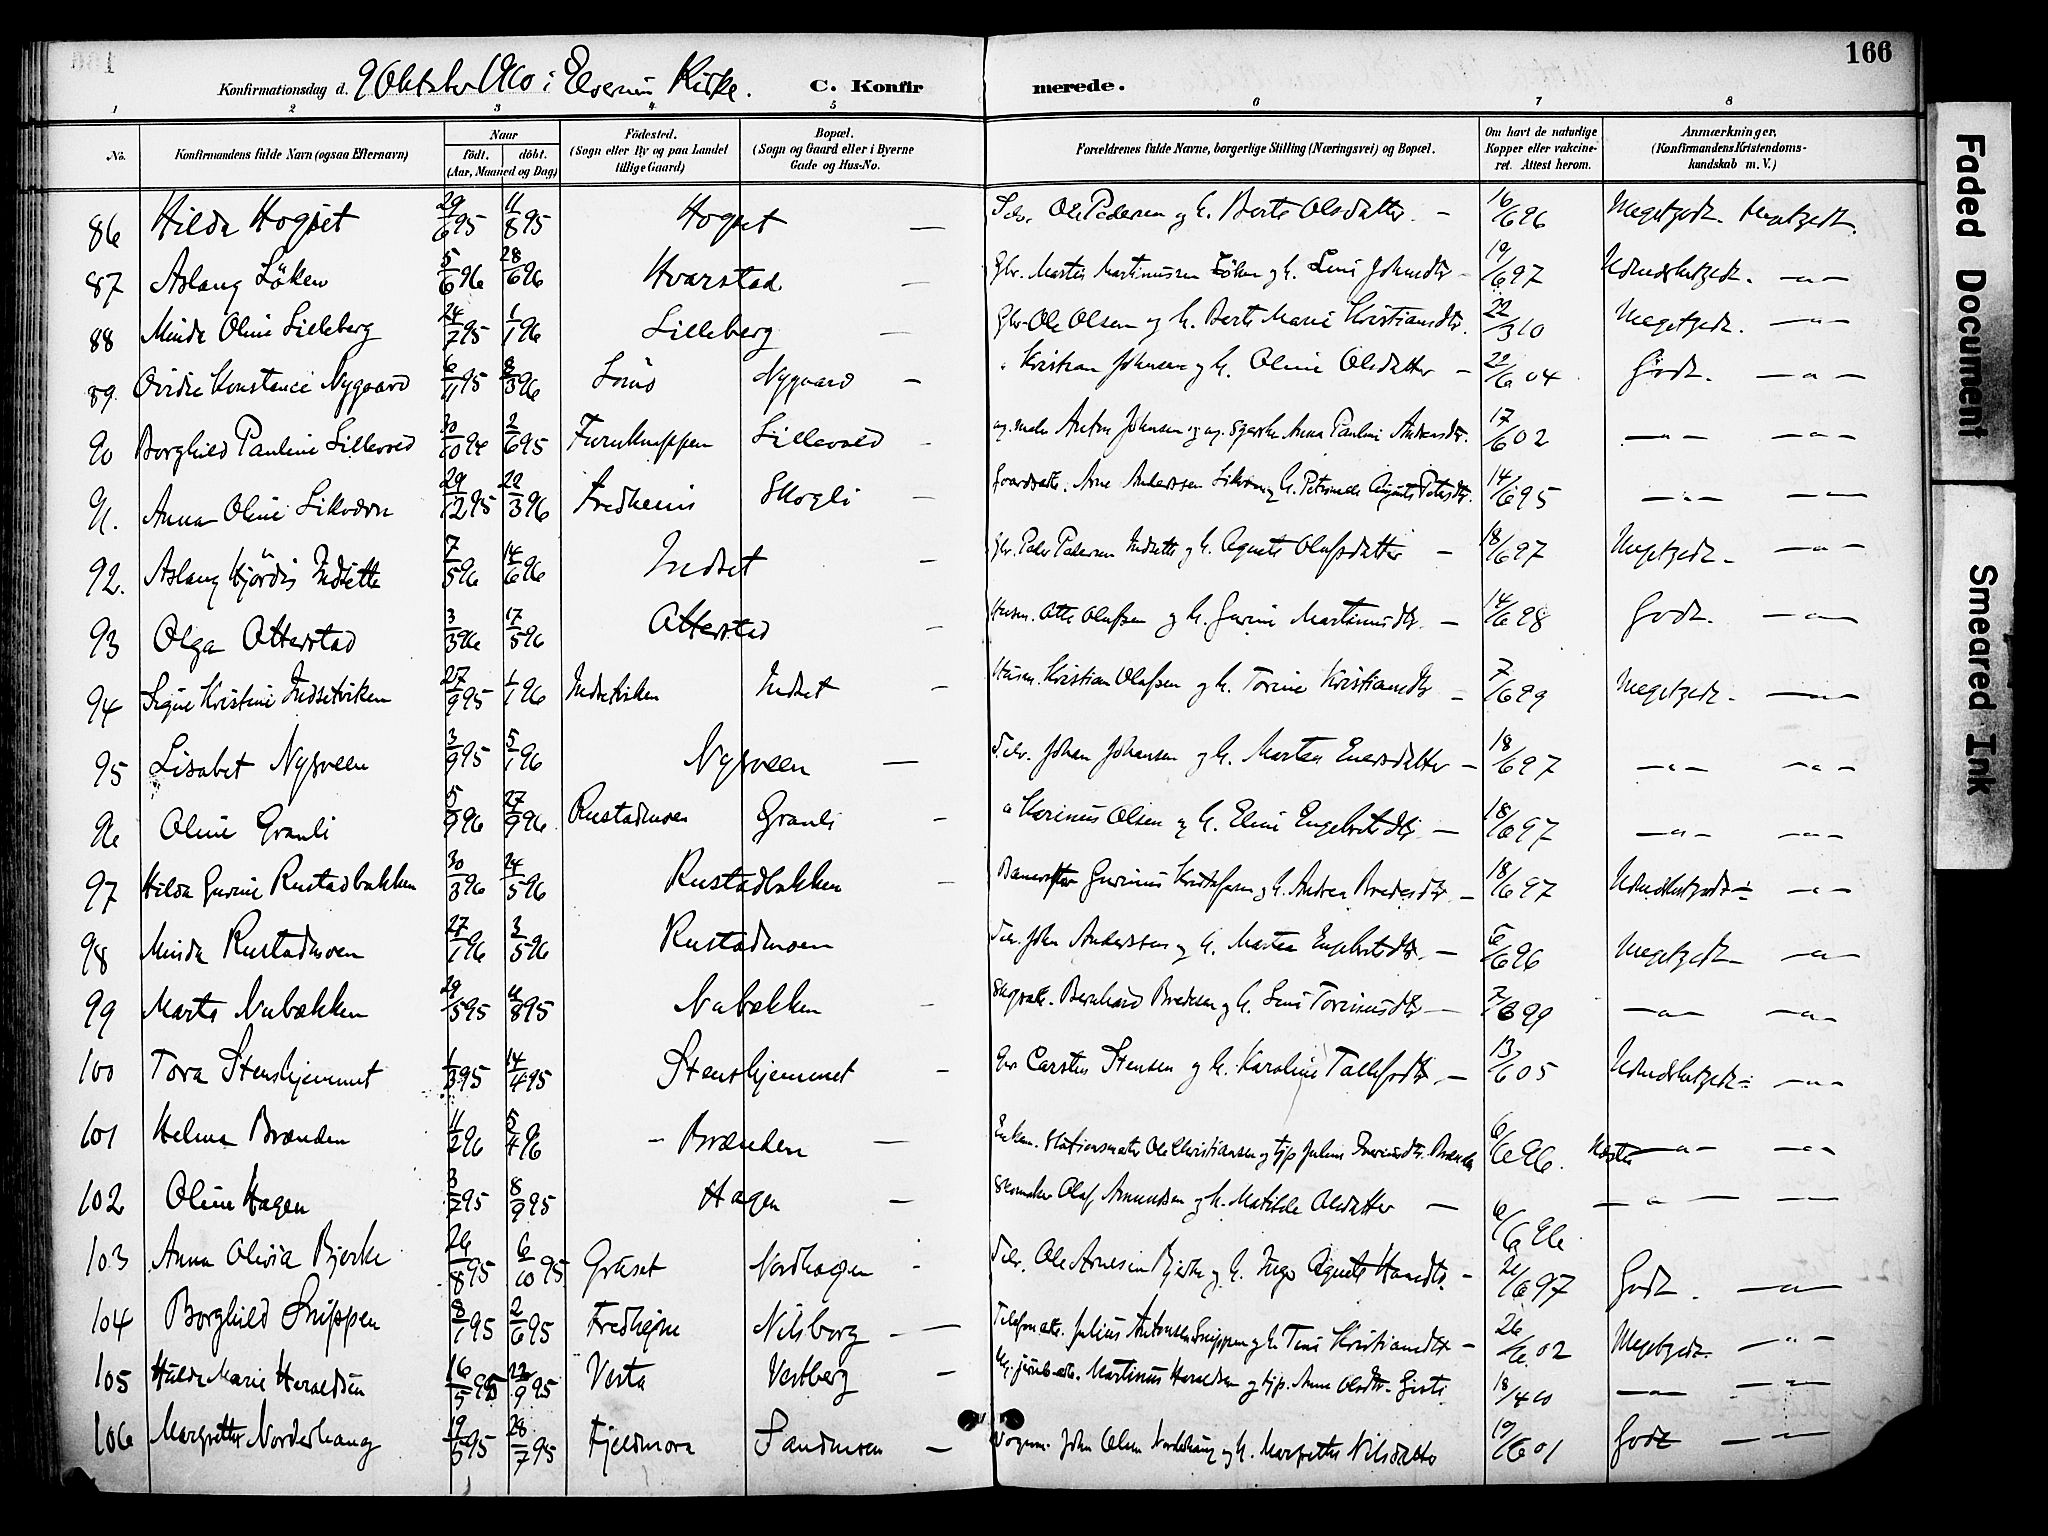 166
Konfirmationsdag d. 9 Oktober 1910 i Elverum Kirke. C. Konfirmerede.
1 2 3 4 5 6 7 8
No. Konfirmandens fulde Navn (ogsaa Efternavn) Naar födt. döbt. (Aar, Maaned og Dag) Födested. (Sogn eller By og paa Landet tillige Gaard) Bopæl. (Sogn og Gaard eller i Byerne Gade og Hus-No. Forældrenes fulde Navne, borgerlige Stilling (Næringsvei) og Bopæl. Om havt de naturlige Kopper eller vakcineret. Attest herom. Anmærkninger, (Konfirmandens Kristendomskundskab m. V.)
86 Hilda Hogset 29/6 95 11/8 95 Hogset — Ole Pedersen og h. Berte Olsdatter — 16/6 96 Megetgodt. Megetgodt.
87 Aslaug Löken 5/6 96 28/6 96 Hvarstad — Gbr. Martin Martinussen Löken og h. Lini Johnsdtr — 19/6 97 Udmerketgodt. — " —
88 Minda Oline Lilleberg 24/7 95 1/1 96 Lilleberg — Gbr. Ole Olsen og h. Berte Marie Kristiansdtr. 22/3 10 Megetgodt. — " —
89. Ovidie Konstance Nygaard 6/11 95 8/3 96 Nygaard — " Kristian Johnsen og h. Oline Olsdatter — 22/6 04 Godt. — " —
90 Borghild Pauline Lillevold 30/10 94 2/6 95 Furuknappen Lillevold — Anton Johnsen og Anna Pauline Andersdtr. 17/6 02 — " — — " —
91. Anna Oline 29/12 95 22/3 96 Fredheim Skogli — Arne Anderssen og h. Petersdtr. 14/6 95 — " — — " —
92. Aslaug Hjördis Indsette 7/5 96 14/6 96 Indset — Gbr. Peder Pedersen Indsette og h. Agnete Olafsdatter — 18/6 97 Megetgodt. — " —
93 Olga Atterstad 3/3 96 17/5 96 Atterstad — Husm. Otto Olafsen og h. Gurine Martinusdtr. — 14/6 98 Godt. — " —
94 Signe Kristine Indsetviken 27/9 95 1/1 96 Indsetviken Indset — Husm. Kristian Olafsen og h. Torine Kristiansdtr — 7/6 99 Megetgodt. — " —
95 Lisabet Nysveen 3/9 95 5/1 96 Nysveen — Johan Johansen og h. Martea Enersdatter — 18/6 97 — " — — " —
96 Oline Granli 5/9 96 27/9 96 Rustadmoen Granli — " Karinus Olsen og h. Eline Engebretsdtr — 18/6 97 — " — — " —
97 Hilda Gurine Rustadbakken 30/3 96 24/5 96 Rustadbakken — Gurinus Kristofersen og h. Andrea Bredesdtr. — 18/6 97 Udmerketgodt — " —
98 Minda Rustadmoen 27/1 96 3/5 96 Rustadmoen John Anderssen og h. Martea Engebretsdtr. — 6/6 96 Megetgodt — " —
99 Marta Nabækken 29/5 95 11/8 95 Nabækken — Bernhard Bredesen og h. Lini Torinusdtr — 7/6 99 — " — — " —
100 Tora Stenshjemmet 1/3 95 14/4 95 Stenshjemmet — Carsten Stensen og h. Karoline Tollefsdtr. — 13/6 05 Udmerketgodt — " —
101 Helma Brænden 11/2 96 5/4 96 — Brænden — Enkem. Stationsmester Ole Christiansen og 6/6 96. — " — — " —
102 Oline Hagen 3/7 95 8/9 95 Hagen — Skomaker Olaf Amundsen og h. Matilde Olsdatter — 6/6 96 — " — — " —
103 Anna Olivia Bjerke 26/8 95 6/10 95 Gråset Nordhagen — Ole Arnesen Bjerke og h. Inga Agnete Hansdtr. — 21/6 97 Godt. — " —
104 Borghild Snippen 8/1 95 2/6 95 Fredhejm Nilsborg — Julius Antonsen Snippen og h. Tini Kristiansdtr — 26/6 02 Megetgodt. — " —
105 Hulda Marie Haraldsen 16/5 95 22/9 95 Vesta Vestberg — Martinus Haraldsen og Anne Olsdtr. 18/4 10 — " — — " —
106 Margrethe Norderhaug 19/5 95 28/7 95 Fjeldmora Sandmoen — John Olsen Norderhaug og h. Margrethe Nilsdatter 19/6 01 Godt — " —
Faded Document
Smeared Ink